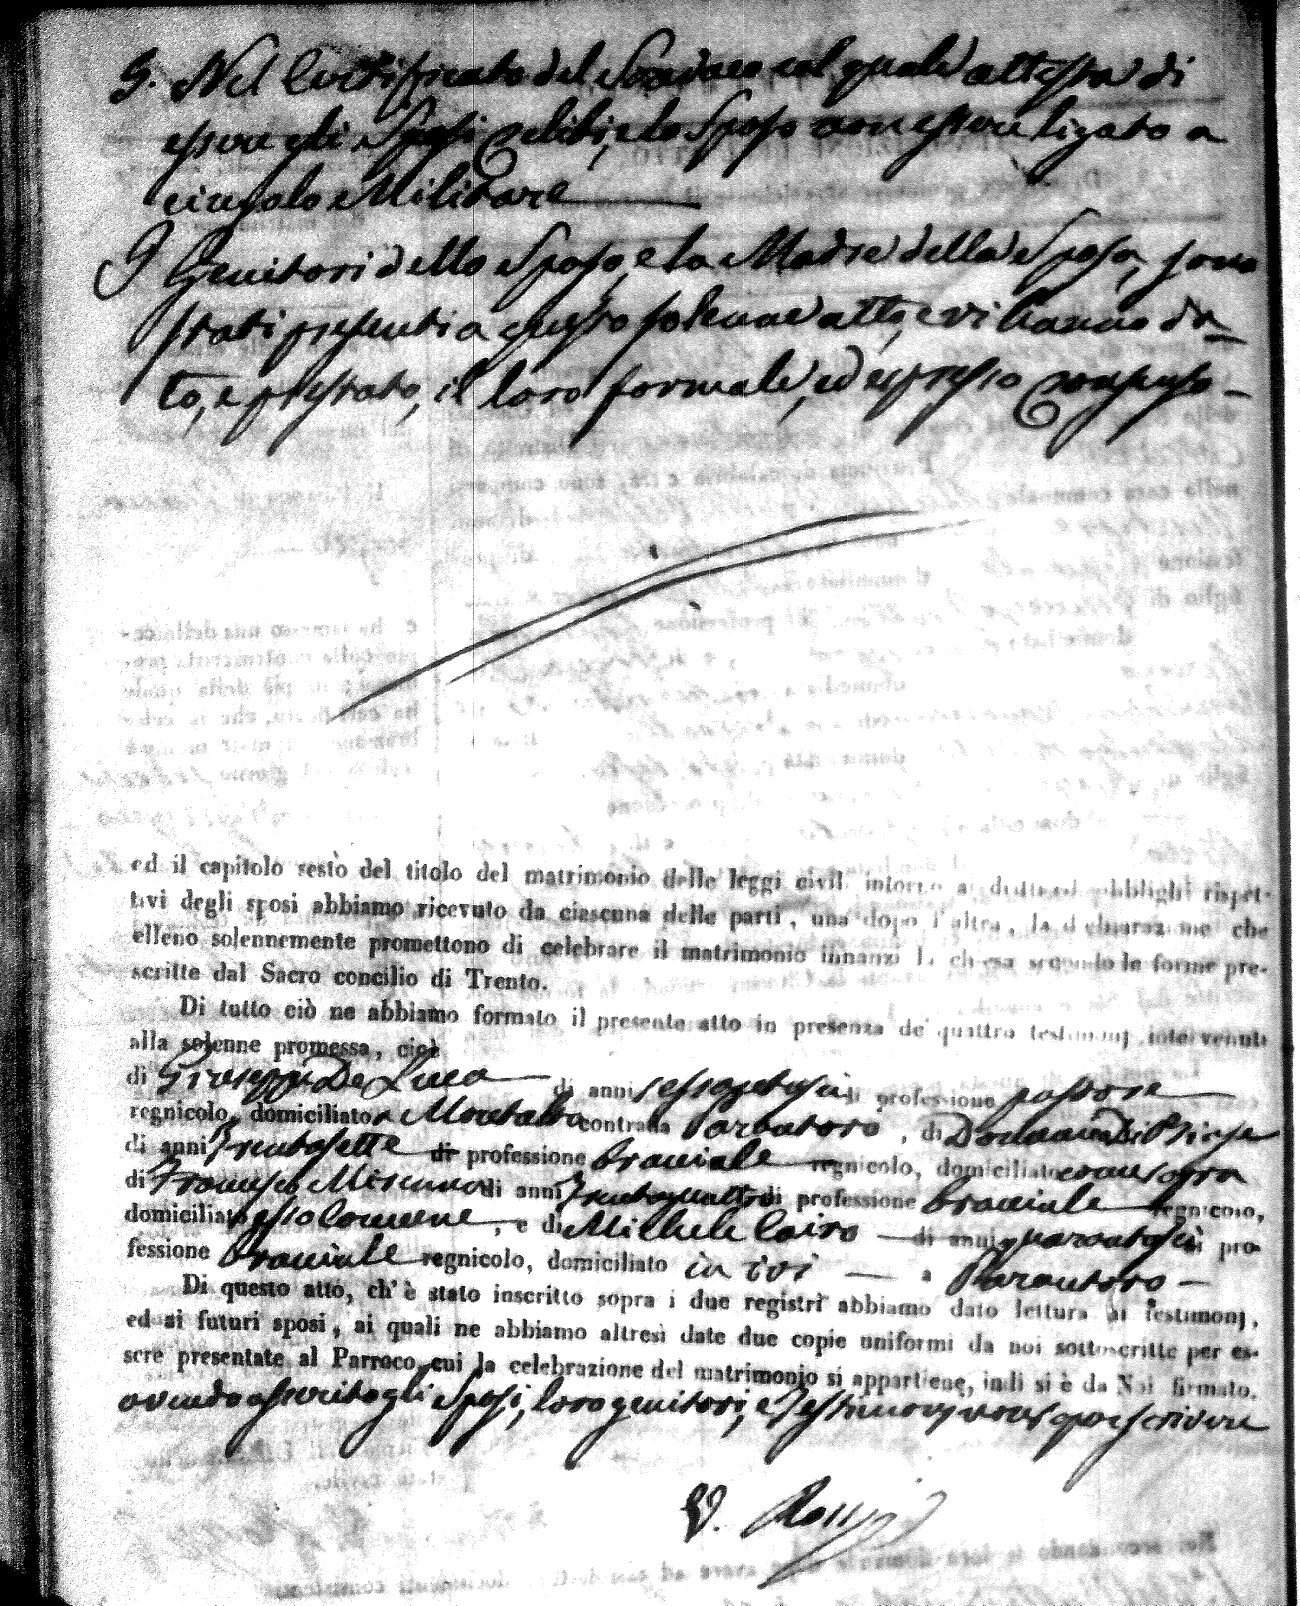 5. Nel Certificato del Sindaco col quale attesta di
essere gli Sposi Celibi, e lo Sposo non essere ligato a
cingolo Militare
I Genitori dello Sposo, e la Madre della Sposa, sono
stati presenti a questo solenne atto, e vi hanno da-
to, e prestato, il loro formale, ed espresso consenso-
ed il capitolo sesto del titolo del matrimonio delle leggi civili intorno ai dritti ed obblighi rispet-
tivi degli sposi abbiamo ricevuto da ciascuna delle parti, una dopo l'altra, la dichiarazione che
elleno solennemente promettono di celebrare il matrimonio innanzi la chiesa secondo le forme pre-
scritte dal Sacro concilio di Trento.
Di tutto ciò ne abbiamo formato il presente atto in presenza de' quattro testimonj intervenuti
alla solenne promessa, cioè
di Giuseppe De Luca di anni sessantasei di professione pastore
regnicolo, domiciliato a Montalto contrada Parantoro, di Domenico Di Biase
di anni trentasette di professione bracciale regnicolo, domiciliato come sopra
di Francesco di anni trentaquattro di professione bracciale regnicolo,
domiciliato esso Comune, e di Michele Cairo di anni quarantasei di pro-
fessione bracciale regnicolo, domiciliato in ivi a Parantoro
Di questo atto, ch'è stato inscritto sopra i due registri abbiamo dato lettura ai testimonj,
ed ai futuri sposi, ai quali ne abbiamo altresì date due copie uniformi da noi sottoscritte per es-
sere presentate al Parroco, cui la celebrazione del matrimonio si appartiene, indi si è da Noi firmato.
avendo asserito gli Sposi, loro genitori, e Testimonj non saper scrivere
V. Rossi